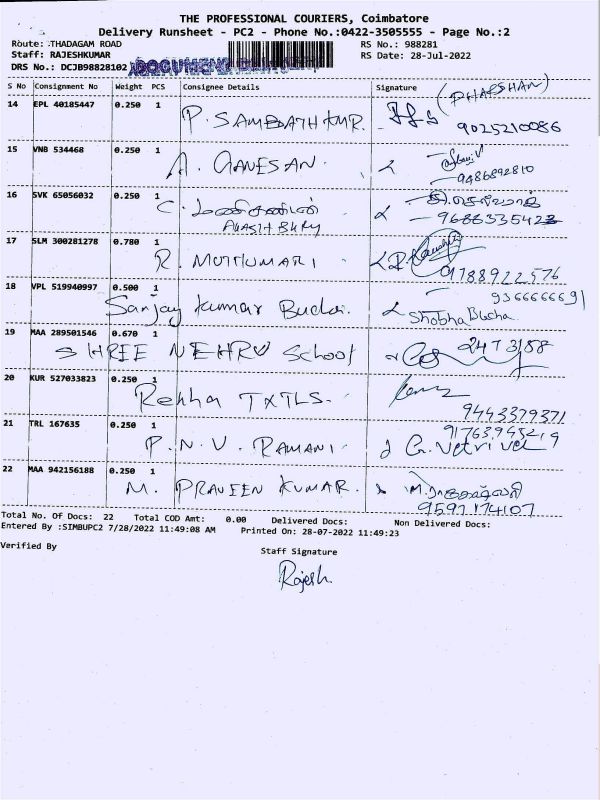 THE PROFESSIONAL COURIERS, Coimbatore
Delivery Runsheet - PC2 - Phone No.:0422-3505555 - Page No.:2
Route: THADAGAM ROAD RS No.: 988281
Staff: RAJESHKUMAR RS Date: 28-Jul-2022
DRS No.: DCJB98828102
S No Consignment No Weight PCS Consignee Details Signature
14 EPL 40185447 0.250 1 P. SAMBATH KMR.
9025210086
15 VNB 534468 0.250 1 A. GANESAN.
9486892810
16 SVK 65056032 0.250 1 C. மணிகண்டன்
AKASH BKRY 9688335423
17 SLM 300281278 0.780 1 R. MUTTUMARI
9788922576
18 VPL 519940997 0.500 1 936666691
Sanjay Kumar Shobha
19 MAA 289501546 0.670 1 2473158
SHREE NEHRU School
20 KUR 527033823 0.250 1 Rekha TXTLS.
9443379371
21 TRL 167635 0.250 1 P. N. V. RAMANI. G. Vetrivel
22 MAA 942156188 0.250 1 M. PRAVEEN KUMAR.
9597174107
Total No. Of Docs: 22 Total COD Amt: 0.00 Delivered Docs: Non Delivered Docs:
Entered By :SIMBUPC2 7/28/2022 11:49:08 AM Printed On: 28-07-2022 11:49:23
Verified By Staff Signature
Rajesh.